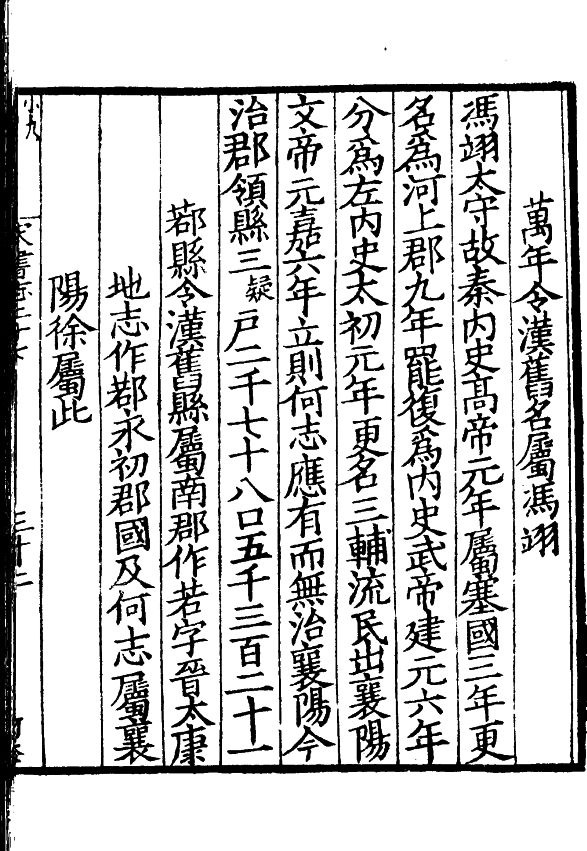 萬年令漢舊名屬馮翊
馮翊太守故秦內史高帝元年屬塞國三年更
名爲河上郡九年罷復爲內史武帝建元六年
分爲左內史太初元年更名三輔流民出襄陽
文帝元嘉六年立則何志應有而無治襄陽今
治郡領縣三疑戸二千七十八口五千三百二十一
鄀縣令漢舊縣屬南郡作若字晉太康
地志作鄀永初郡國及何志屬襄
陽徐屬此
三十二